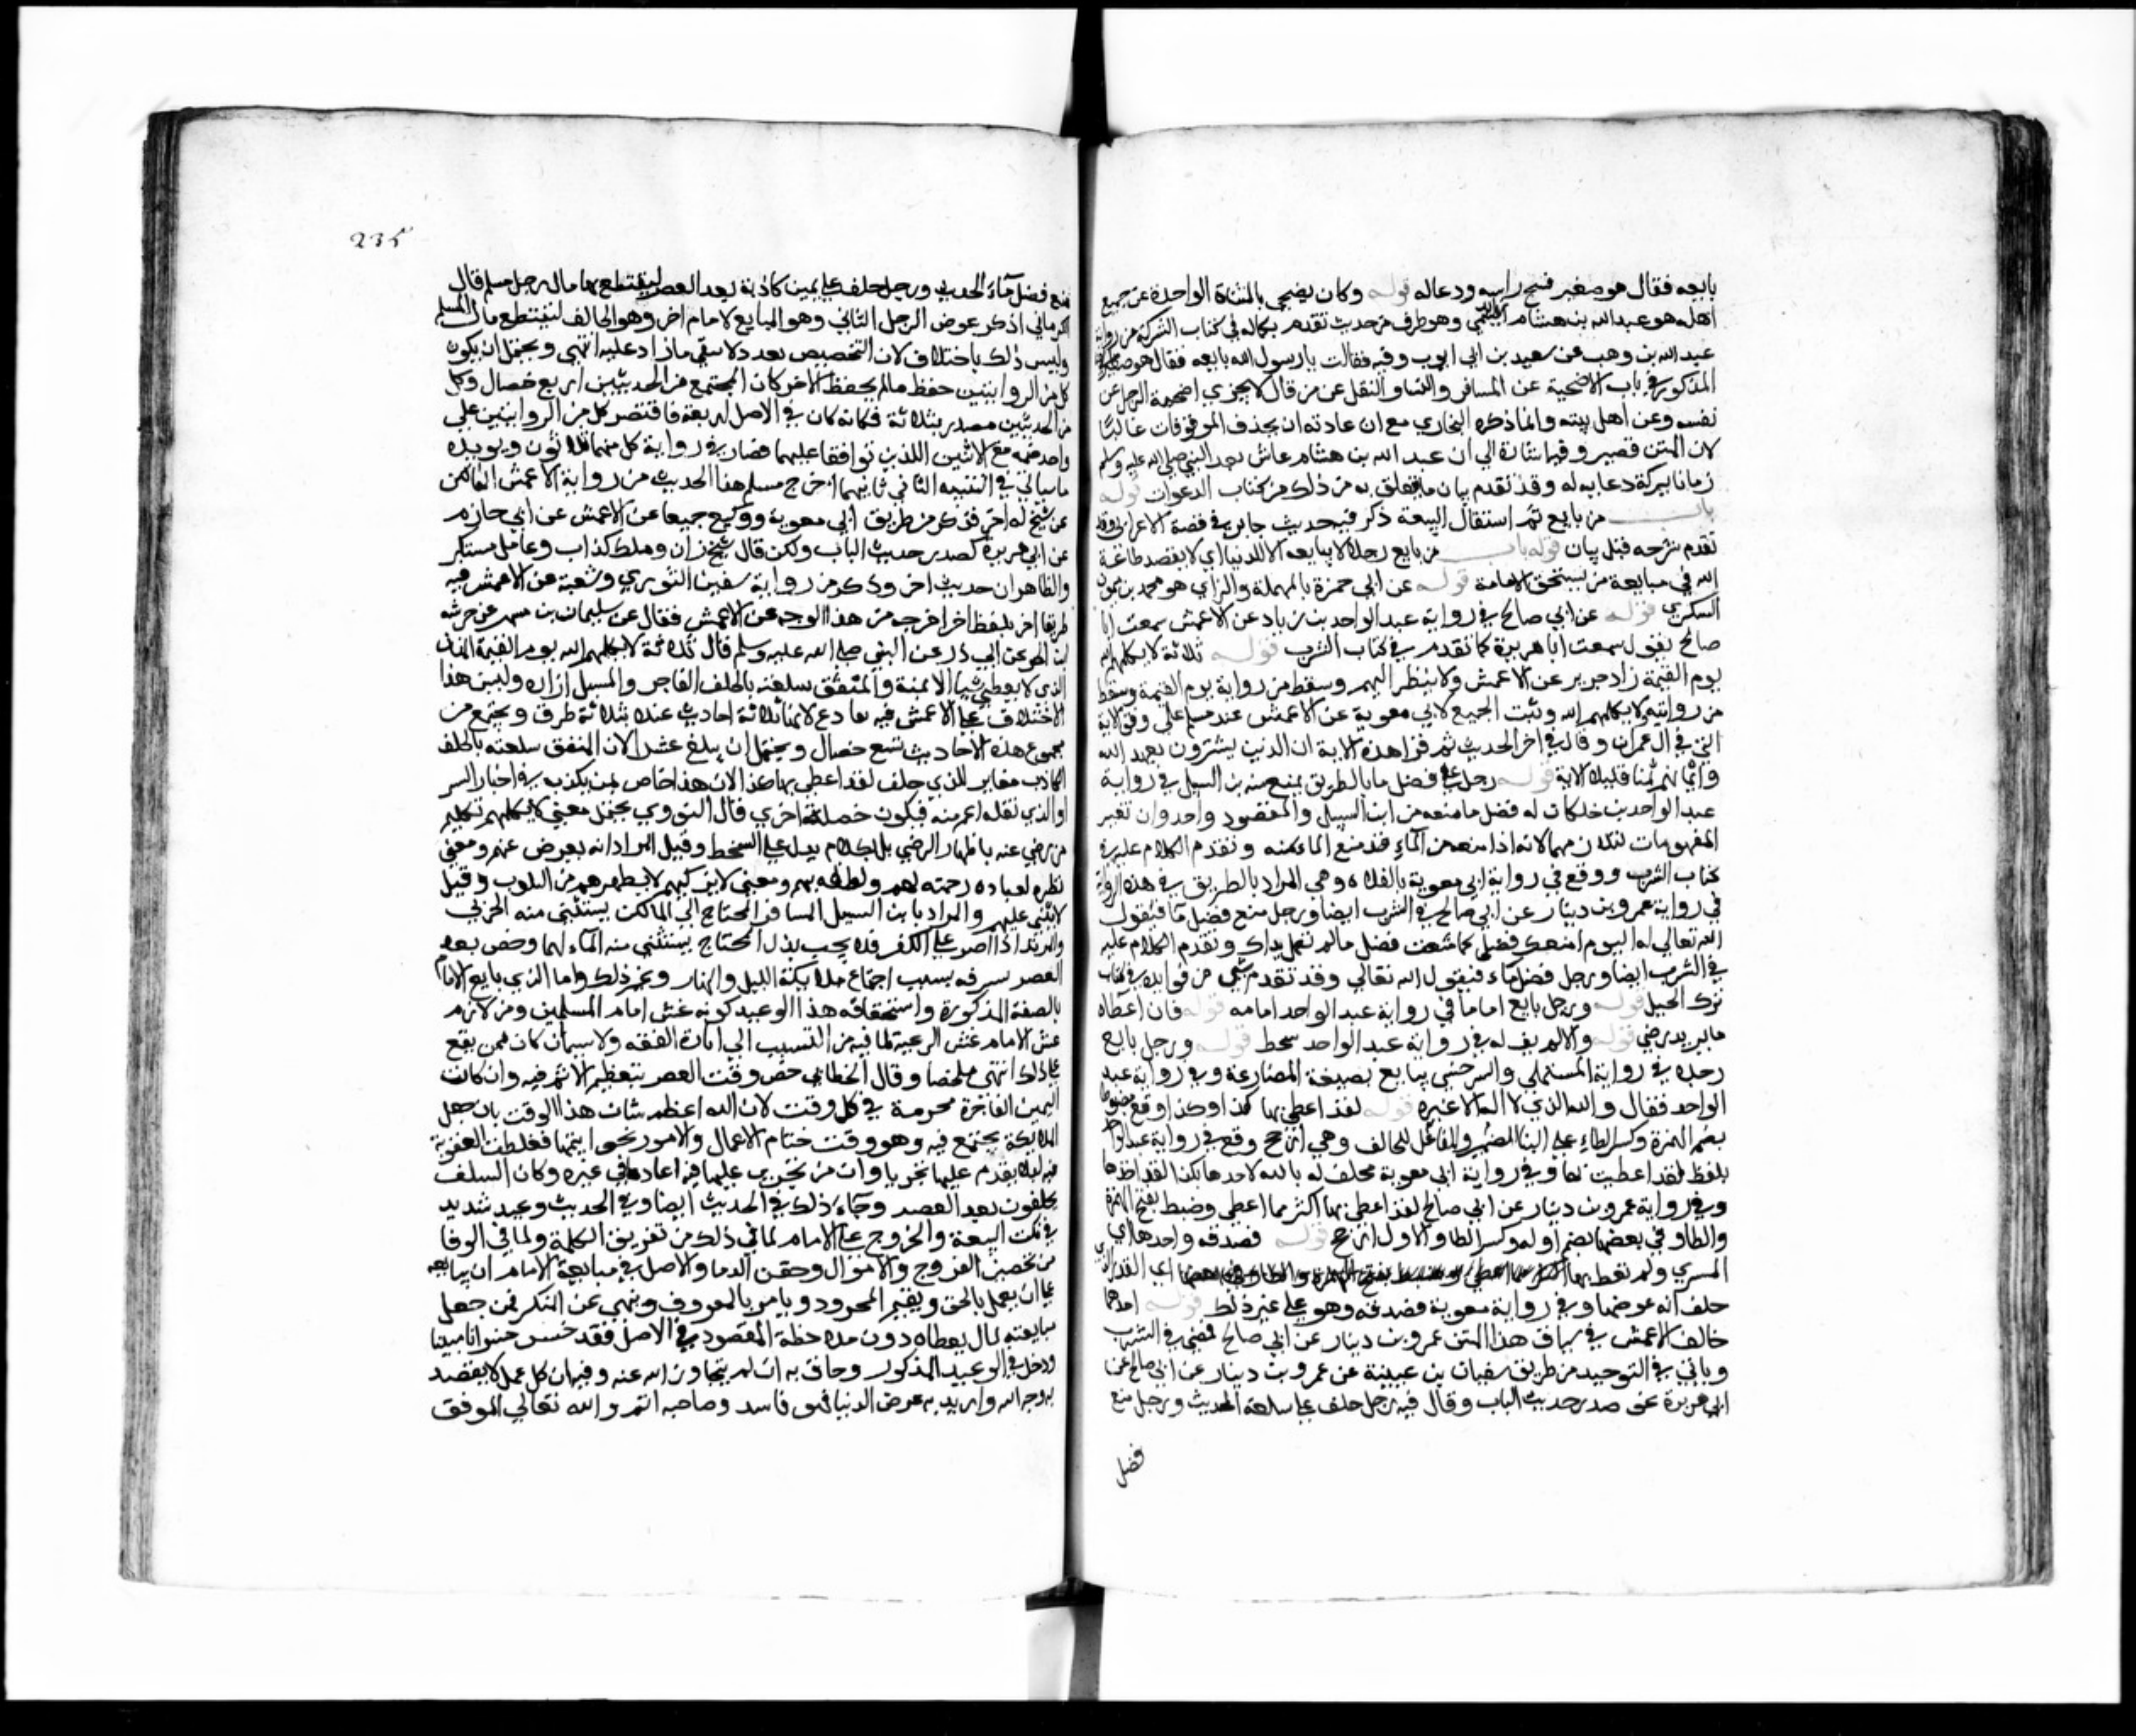 بايعه فقال هو صغير فمسح راسه ودعا له قوله وكان يضحي بالشاة الواحدة عن جميع
اهله هو عبد الله بن هشام وهو طرف من حديث تقدم بكماله في كتاب الشركة من رواية
عبد الله بن وهب عن سعيد بن ابي ايوب وفيه فقالت يا رسول الله بايعه فقال هو صغير
المذكور في باب الاضحية عن المسافر والنسا والنقل عن من قال لا يجزي اضحية الرجل عن
نفسه وعن اهل بيته وانما ذكره البخاري مع ان عادته ان يحذف الموقوفات غالبا
لان المتن قصير وفيه اشارة الي ان عبد الله بن هشام عاش بعد النبي صلي الله عليه وسلم
زمانا ببركة دعايه له وقد تقدم بيان ما يتعلق به من ذلك من كتاب الدعوات قوله
باب من بايع ثم استقال البيعة ذكر فيه حديث جابر في قصة الاعرابي وقد
تقدم شرحه قبل بيان قوله باب من بايع رجلا لا يبايعه الا للدنيا اي لا يقصد طاعة
الله في مبايعة من يستحق الامامة قوله عن ابي حمزة بالمهملة والزاي هو محمد بن ميمون
السكري قوله عن ابي صالح في رواية عبد الواحد بن زياد عن الاعمش سمعت ابا
صالح يقول سمعت ابا هريرة كما تقدم في كتاب الشرب قوله ثلاثة لا يكلمهم الله
يوم القيمة زاد جرير عن الاعمش ولا ينظر اليهم وسقط من رواية يوم القيمة وسقط
من روايته لا يكلمهم الله وثبت الجميع لابي معوية عن الاعمش عند مسلم علي وفق الاية
التي في ال عمران وقال في اخر الحديث ثم قرا هذه الاية ان الذين يشترون بعهد الله
وايمانهم ثمنا قليلا الاية قوله رجل علي فضل ما بالطريق يمنع منه بن السبيل في رواية
عبد الواحد بن خلد كان له فضل ما منعه من ابن السبيل والمقصود واحد وان تغير
المفهومان لتلازمهما لانه اذا منعه من الماء فقد منع الماء منه وتقدم الكلام عليه في
كتاب الشرب ووقع في رواية ابي معوية بالفلاه وهي المراد بالطريق في هذه الرواية
في رواية عمرو بن دينار عن ابي صالح في الشرب ايضا ورجل منع فضل ما فيقول
الله تعالي له اليوم امنعك فضلي كما منعت فضل ما لم تعمل يداك وتقدم الكلام عليه
في الشرب ايضا ورجل فضل ماء فيقول الله تعالي وقد تقدم شي من فوايده في كتاب
ترك الحيل قوله ورجل بايع اماما في رواية عبد الواحد امامه قوله فان اعطاه
ما يريد رضي قوله والا لم يف له في رواية عبد الواحد سخط قوله ورجل بايع
رجلا في رواية المستملي والسرخسي يبايع بصيغة المضارعة وفي رواية عبد
الواحد فقال والله الذي لا اله الا غيره قوله لقد اعطي بها كذا وكذا وقع مضبوطا
بضم الهمزة وكسر الطاء علي البنا للمفعول للحالف وهي ارجح وقع في رواية عبد الواحد
بلفظ لقد اعطيت بها وفي رواية ابي معوية فحلف له بالله لاخذها بكذا
وفي رواية عمرو بن دينار عن ابي صالح لقد اعطي بها اكثر مما اعطي وضبط بفتح الهمزة
والطاو في بعضها بضم اوله وكسر الطاو الاول ارجح قوله فصدقه واخذها اي
المشتري ولم تعط بها اي القدر الذي
حلف انه عوضها وفي رواية معوية فصدقه وهو علي غير ذلك قوله احدهما
خالف الاعمش في سياق هذا المتن عمرو بن دينار عن ابي صالح فمضي في الشرب
وياتي في التوحيد من طريق سفيان بن عيينة عن عمرو بن دينار عن ابي صالح عن
ابي هريرة نحو صدر حديث الباب وقال فيه رجل حلف علي سلعة الحديث ورجل منع
فضل
235
منع فضل ماء الحديث ورجل حلف علي يمين كاذبة بعد العصر ليقتطع بها مال رجل مسلم قال
الكرماني اذكر عوض الرجل الثاني وهو المبايع لامام اخر وهو الحالف ليقتطع مال المسلم
وليس ذلك باختلاف لان التخصيص بعدد لا ينفي ما زاد عليه انتهي ويحتمل ان يكون
كل من الروايتين حفظ ما لم يحفظ الاخر كان المجتمع من الحديثين اربع خصال وكل
من الحديثين مصدر بثلاثة فكانه كان في الاصل اربعة فاقتصر كل من الروايتين علي
واحد ضمه مع الاثنين اللذين توافقا عليهما فصار في رواية كل منهما ثلاثون ويويده
ما سياتي في التنبيه الثاني ثانيهما اخرج مسلم هذا الحديث من رواية الاعمش لكن
عن شيخ له اخر فذكر من طريق ابي معوية ووكيع جميعا عن الاعمش عن ابي حازم
عن ابي هريرة كصدر حديث الباب ولكن قال شيخ زان وملك كذاب وعامل مستكبر
والظاهر ان حديث اخر وذكر من رواية سفين الثوري وشعبة عن الاعمش فيه
طريقا اخر بلفظ اخر اخرجه من هذا الوجه عن الاعمش فقال عن سليمان بن مسهر عن خرشه
ابن الحر عن ابي ذر عن النبي صلي الله عليه وسلم قال ثلاثة لا يكلمهم الله يوم القيمة المنان
الذي لا يعطي شيا الا منة والمنفق سلعته بالحلف الفاجر والمسبل ازاره وليس هذا
الاختلاف علي الاعمش فيه بقادع لانها ثلاثة احاديث عنده بثلاثة طرق ويجتمع من
مجموع هذه الاحاديث تسع خصال ويحتمل ان يبلغ عشرا لان المنفق سلعته بالحلف
الكاذب مغاير للذي حلف لقد اعطي بها كذا لان هذا خاص لمن يكذب في اخبار السر
او الذي نقله اعم منه فيكون خصلة اخري قال النووي يحتمل معني لا يكلمهم تكليم
من رضي عنه باظهار الرضي بل بكلام يدل علي السخط وقيل المراد انه يعرض عنهم ومعني
نظره لعباده رحمته لهم ولطفه بهم ومعني لا يزكيهم لا يطهرهم من الذنوب وقيل
لا يثني عليهم والمراد بابن السبيل المسافر المحتاج الي الماء لكن يستثني منه الحربي
والمرتد اذا اصرا علي الكفر فلا يجب بذل المحتاج يستثني منه الماء لهما وخص بعد
العصر بشرفه بسبب اجتماع ملايكة الليل والنهار وغير ذلك واما الذي بايع الامام
بالصفة المذكورة واستحقاقه هذا الوعيد كونه غش امام المسلمين ومن لازم
غش الامام غش الرعية لما فيه من التسبب الي اثارة الفتنه ولا سيما ان كان ممن يتبع
علي ذلك انتهي ملخصا وقال الخطابي خص وقت العصر بتعظيم الاثم فيه وان كانت
اليمين الفاجرة محرمة في كل وقت لان الله اعظم شان هذا الوقت بان جعل
الملايكة يجتمع فيه وهو وقت ختام الاعمال والامور بخواتيمها فغلظت العقوبة
فيه ليلا يقدم عليها تجريا وان من تجري عليها فيه اعادها في غيره وكان السلف
يحلفون بعد العصر وجاء ذلك في الحديث ايضا وفي الحديث وعيد شديد
في نكث البيعة والخروج علي الامام لما في ذلك من تفريق الكلمة ولما في الوفا
من تحصين الفروج والاموال وحقن الدما والاصل في مبايعة الامام ان يبايعه
علي ان يعمل بالحق ويقيم الحدود ويامر بالمعروف وينهي عن المنكر فمن جعل
مبايعته لمال يعطاه دون ملاحظة المقصود في الاصل فقد خسر خسرانا مبينا
ودخل في الوعيد المذكور وحاق به ان لم يتجاوز الله عنه وفيه ان كل عمل لا يقصد
به وجه الله واريد به عرض الدنيا فهو فاسد وصاحبه اثم والله تعالي الموفق